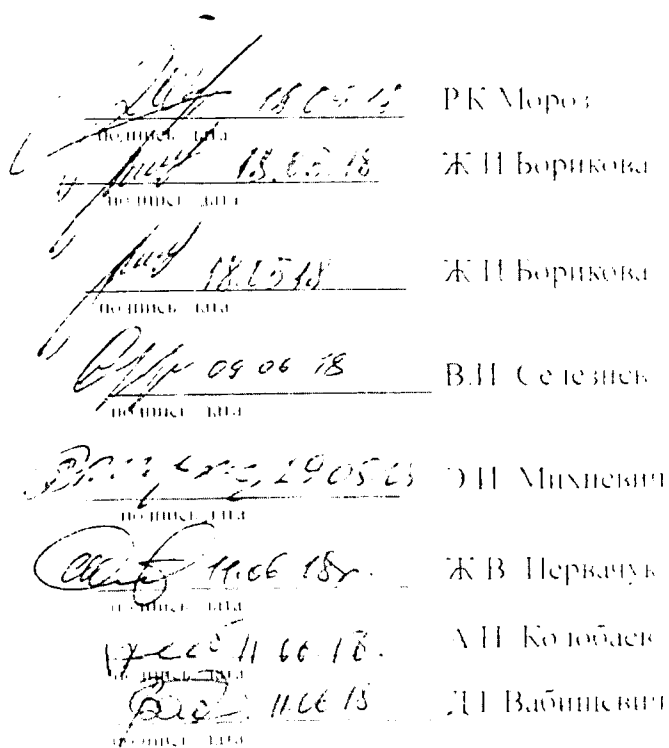 18.05.18 Р.К.Мороз
подпись, дата
18.05.18 Ж.И.Борикова
подпись, дата
18.05.18 Ж.И.Борикова
подпись, дата
09 06 18 В.И. Селезнев
подпись, дата
29 05 18 Э.И. Михневич
подпись, дата
11.06 18г. Ж.В. Первачук
подпись, дата
11 06 18. А.И. Колобаев
подпись, дата
11.06 18 Д.Г. Вабищевич
подпись, дата